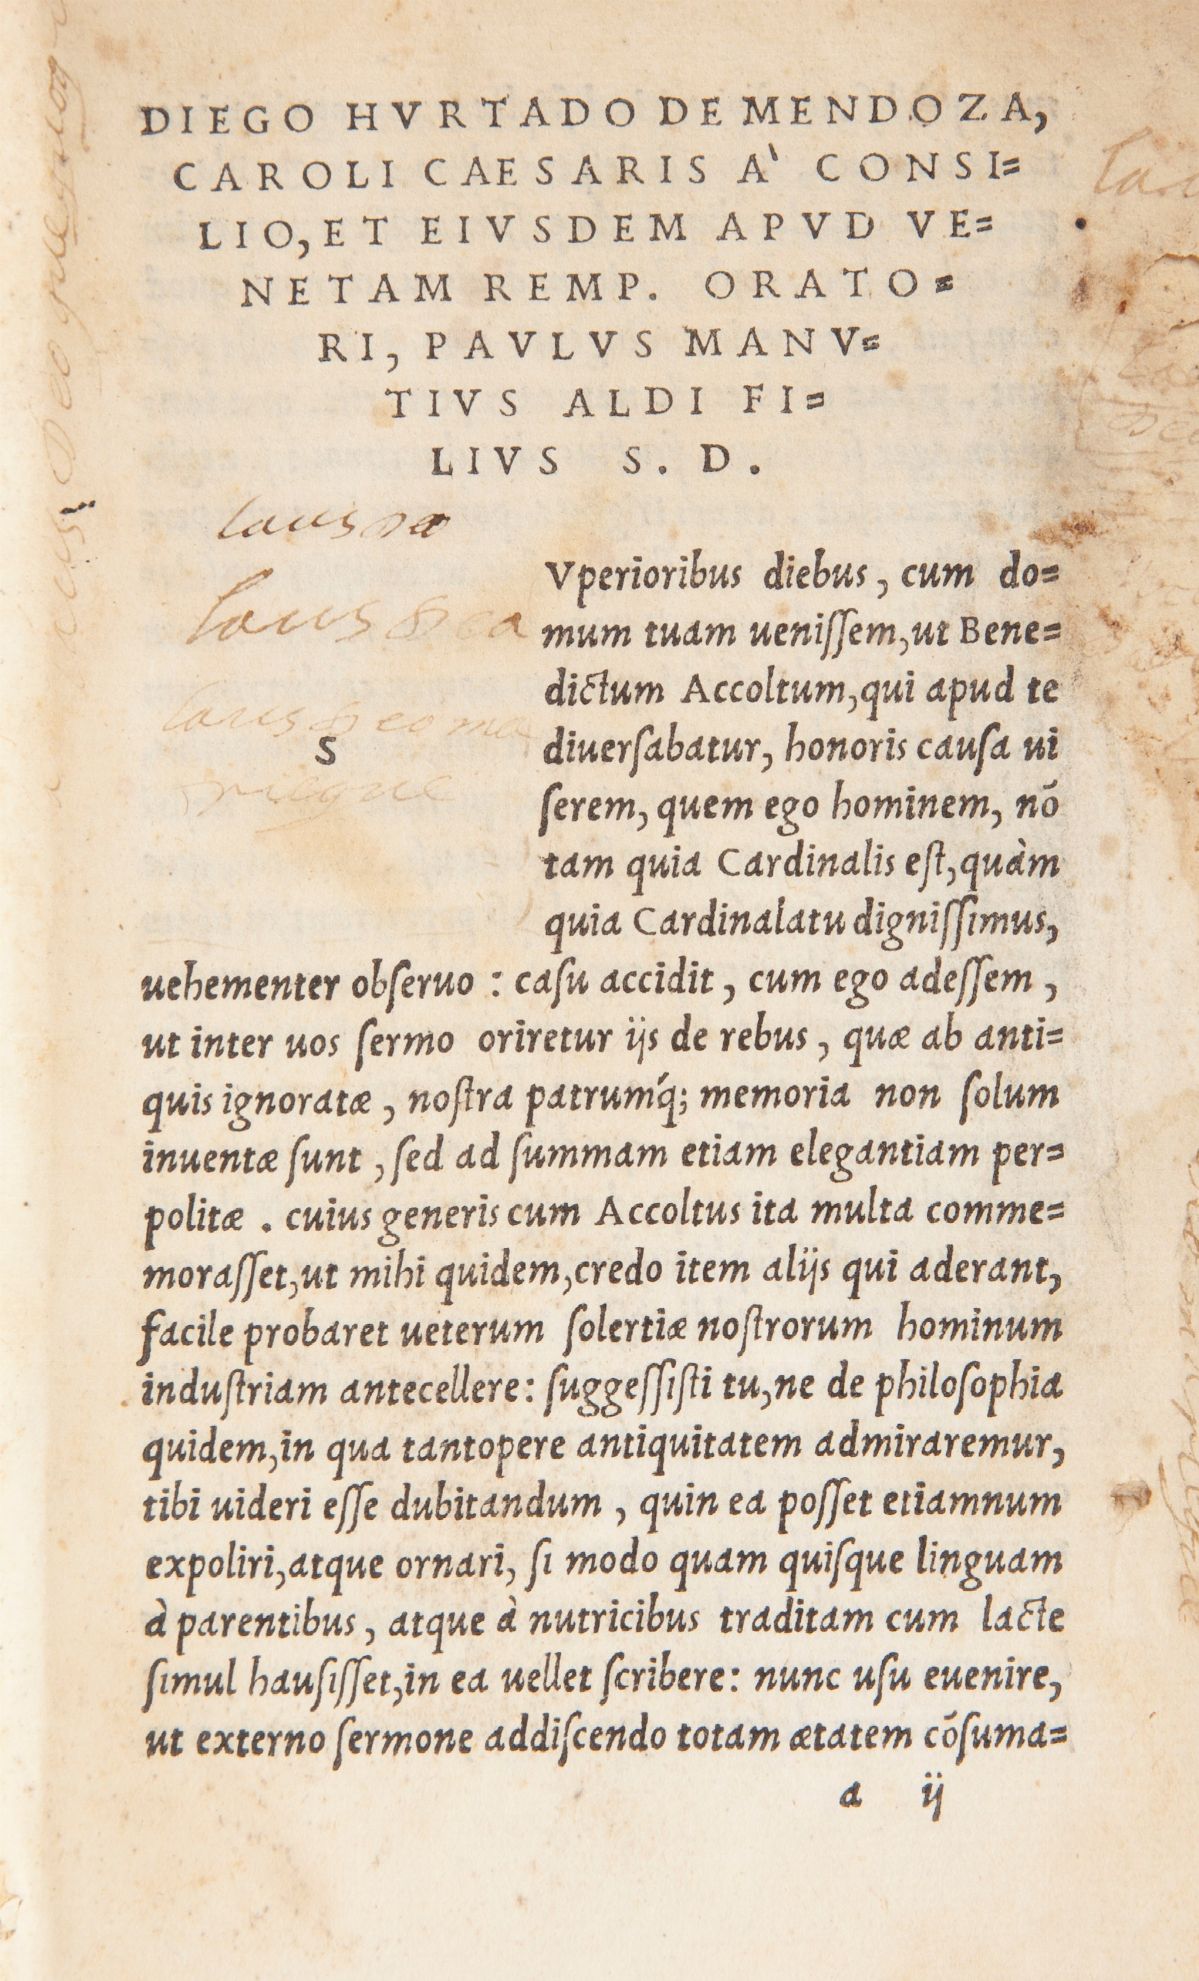 DIEGO HVRTADO DE MENDOZA,
CAROLI CAESARIS A' CONSI=
LIO, ET EIVSDEM APVD VE=
NETAM REMP. ORATO=
RI, PAVLVS MANV=
TIVS ALDI FI=
LIVS S. D.
laus
laus dea
laus deo
S
Vperioribus diebus, cum do=
mum tuam uenissem, ut Bene=
dictum Accoltum, qui apud te
diuersabatur, honoris causa ui
serem, quem ego hominem, nō
tam quia Cardinalis est, quàm
quia Cardinalatu dignissimus,
uehementer obseruo : casu accidit, cum ego adessem,
ut inter uos sermo oriretur ijs de rebus, quæ ab anti=
quis ignoratæ, nostra patrumq́; memoria non solum
inuentæ sunt, sed ad summam etiam elegantiam per=
politæ. cuius generis cum Accoltus ita multa comme=
morasset, ut mihi quidem, credo item alijs qui aderant,
facile probaret ueterum solertiæ nostrorum hominum
industriam antecellere: suggessisti tu, ne de philosophia
quidem, in qua tantopere antiquitatem admiraremur,
tibi uideri esse dubitandum, quin ea posset etiamnum
expoliri, atque ornari, si modo quam quisque linguam
à parentibus, atque à nutricibus traditam cum lacte
simul hausisset, in ea uellet scribere: nunc usu euenire,
ut externo sermone addiscendo totam ætatem cōsuma=
a ij